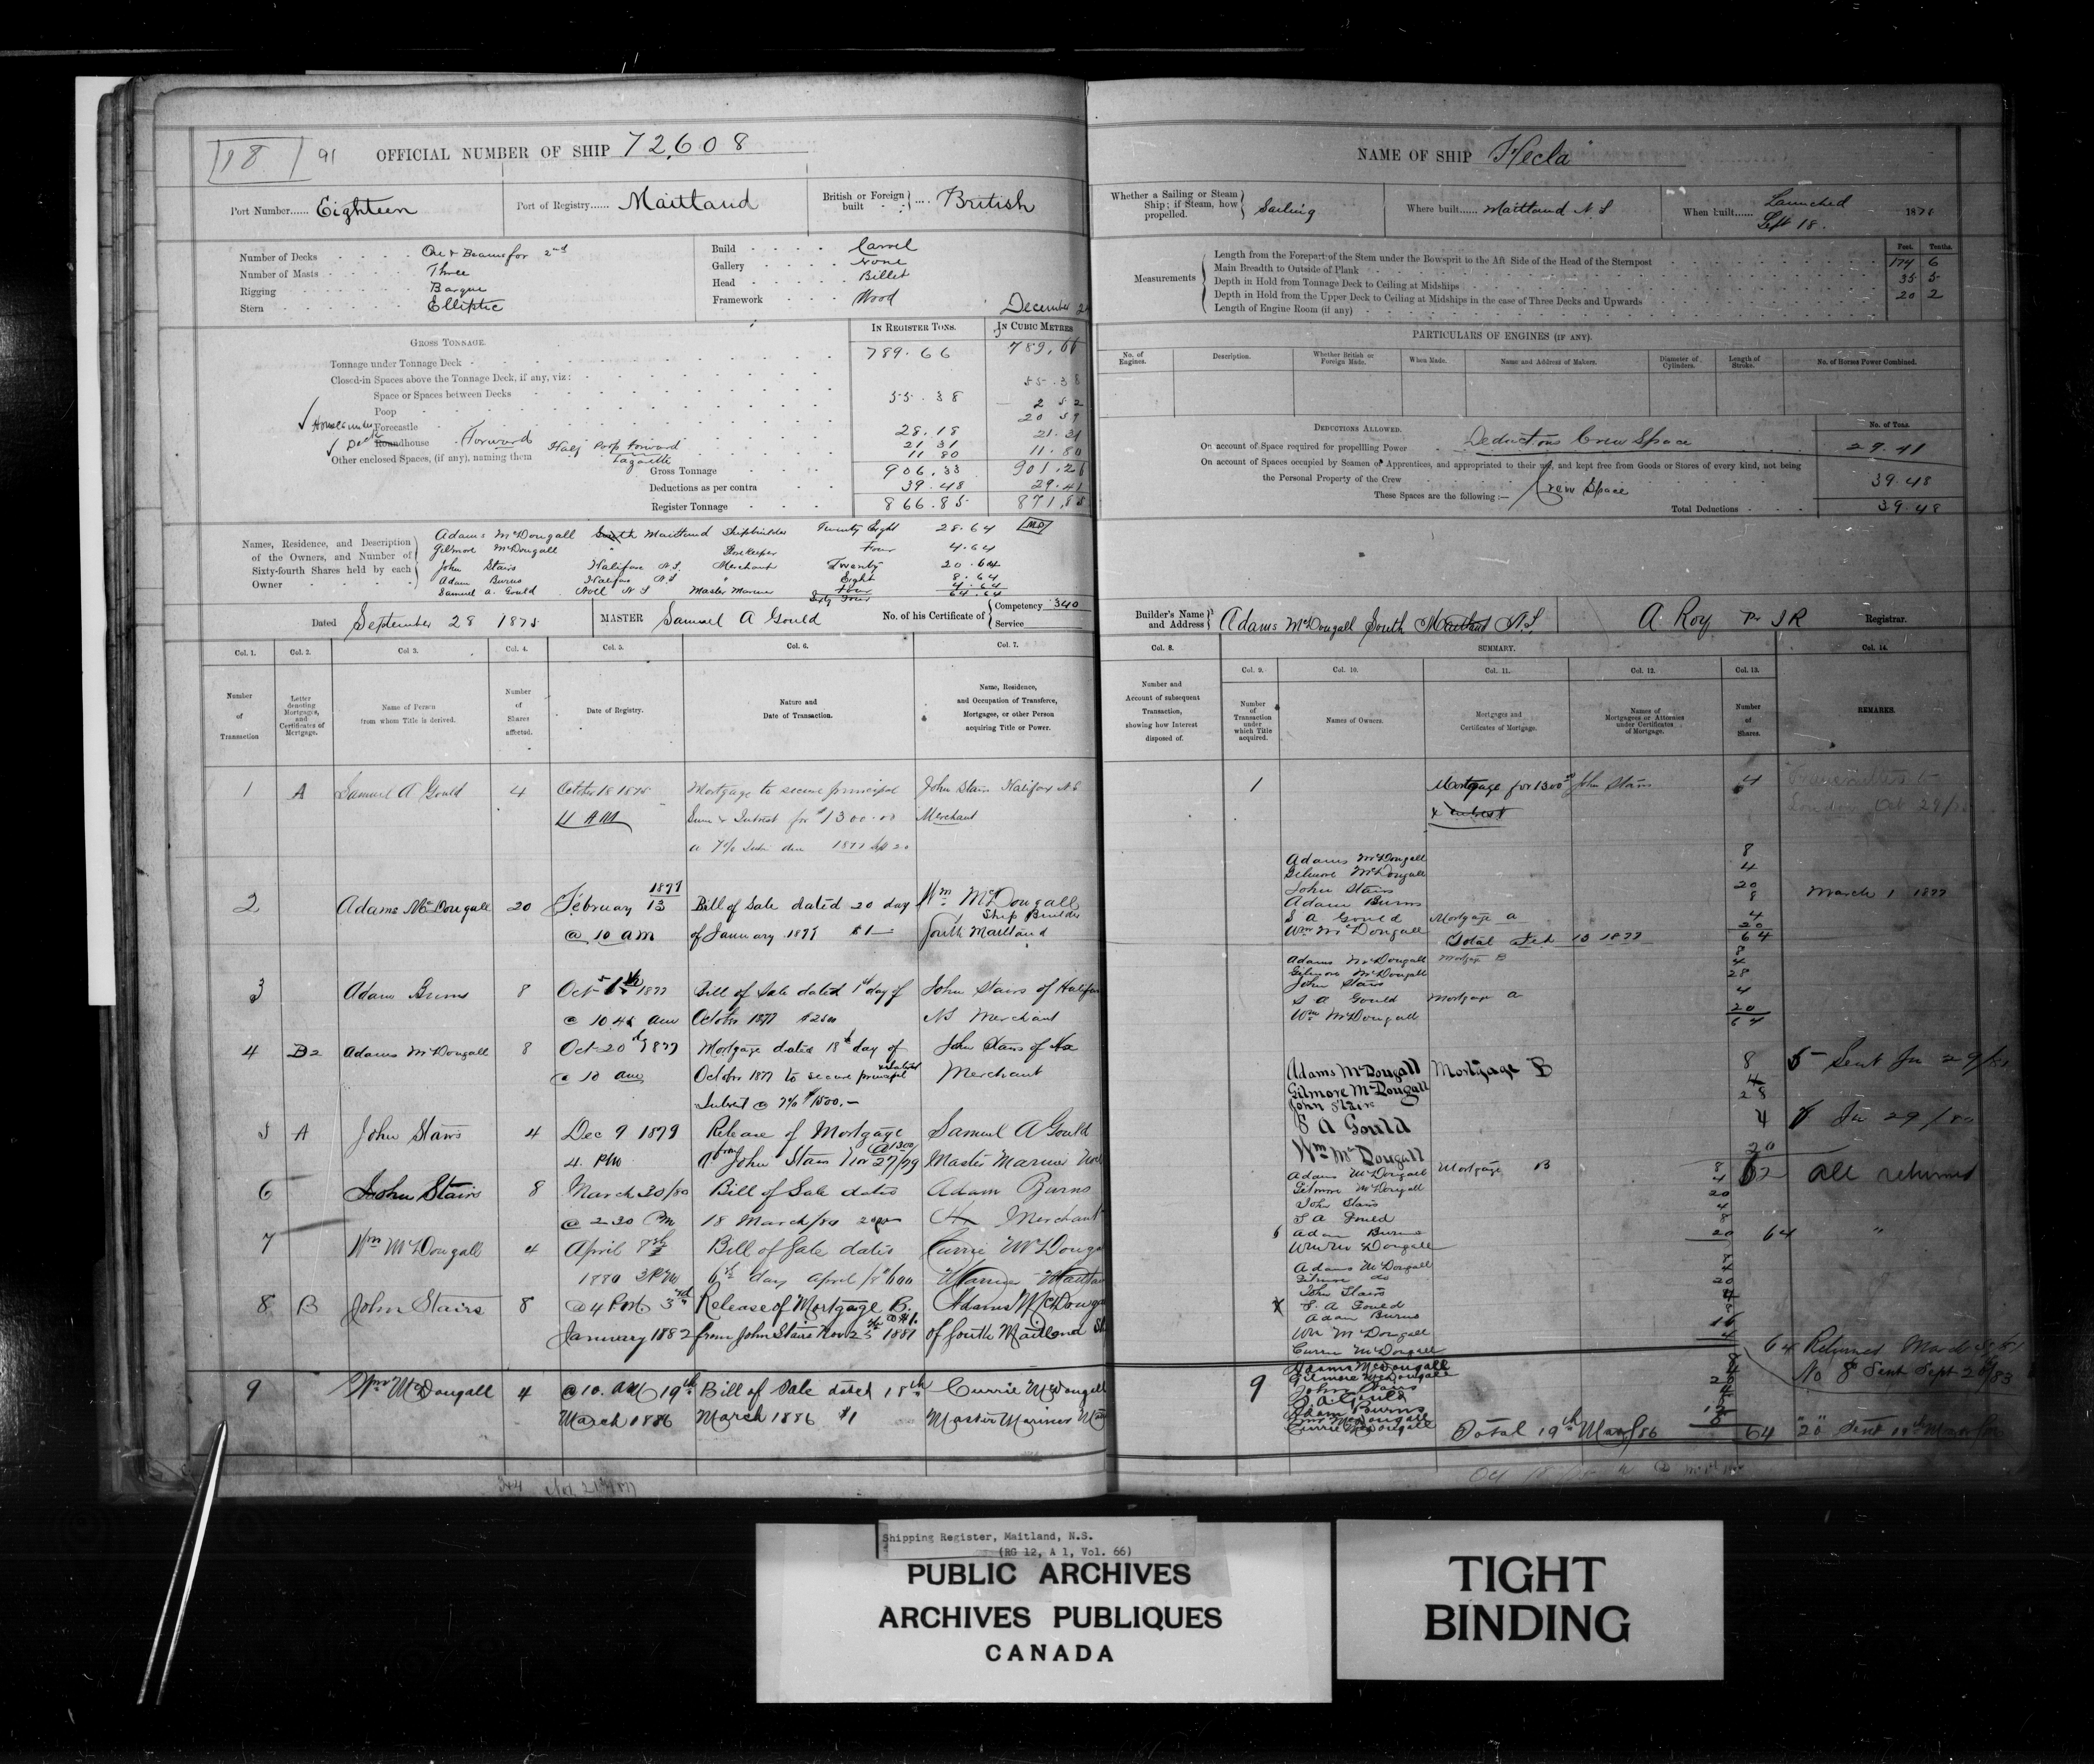 18 91 OFFICIAL NUMBER OF SHIP 72,608
Port Number...... Eighteen Port of Registry...... Maitland British or Foreign built .... British
Number of Decks One & Beams for 2nd
Number of Masts Three
Rigging Barque
Stern Elliptic
Build Carvel
Gallery None
Head Billet
Framework Wood
December
GROSS TONNAGE. IN REGISTER TONS. IN CUBIC METRES
Tonnage under Tonnage Deck 789.66 789.66
Closed-in Spaces above the Tonnage Deck, if any, viz:
Space or Spaces between Decks 55.38
Poop 55.38 2 52
Forecastle 20 59
Roundhouse Forward 28.18 21.31
Other enclosed Spaces, (if any), naming them Half Poop Forward 21 31 11.80
Lazarette 11 80
Gross Tonnage 906.33 901.26
Deductions as per contra 39.48 29.41
Register Tonnage 866.85 871,85
Names, Residence, and Description of the Owners, and Number of Sixty-fourth Shares held by each Owner
Adams McDougall South Maitland Shipbuilder Twenty Eight 28.64
Gilmore McDougall " Storekeeper Four 4.64
John Stairs Halifax N.S. Merchant Twenty 20.64
Adam Burns Halifax N S " Eight 8.64
Samuel A. Gould Noel N S Master Mariner Four 4.64
Sixty Four 64.64
Dated September 28 1875 MASTER Samuel A Gould No. of his Certificate of Competency 340
Service
Col. 1. Col. 2. Col 3. Col. 4. Col. 5. Col. 6. Col. 7.
Number of Transaction
Letter denoting Mortgages, and Certificates of Mortgage.
Name of Person from whom Title is derived.
Number of Shares affected.
Date of Registry.
Nature and Date of Transaction.
Name, Residence, and Occupation of Transferee, Mortgagee, or other Person acquiring Title or Power.
1 A Samuel A Gould 4 October 18 1875 Mortgage to secure principal John Stairs Halifax N S
11 AM Sum & Interest for $1300.00 Merchant
2 Adams McDougall 20 February 13 1877 Bill of Sale dated 20 day Wm McDougall
Ship Builder
@ 10 am of January 1877 $1 South Maitland
3 Adam Burns 8 Oct 1877 Bill of Sale dated 1st day of John Stairs of Halifax
@ 10 45 am October 1877 $2500 NS Merchant
4 B2 Adams McDougall 8 Oct 20 1877 Mortgage dated 18th day of John Stairs of Hx
@ 10 am October 1877 to secure principal Merchant
Interest @ 7% $1500.—
5 A John Stairs 4 Dec 9 1879 Release of Mortgage Samuel A Gould
4. PM from John Stairs Nov 27/79 Master Mariner
6 John Stairs 8 March 30/80 Bill of Sale dated Adam Burns
@ 2 30 Pm 18 March/80 Hx Merchant
7 Wm McDougall 4 April 8th Bill of Sale dated Currie McDougall
1880 3 PM 6th day April
8 B John Stairs 8 @ 4 PM 3rd Release of Mortgage B. Adams McDougall
January 1882 from John Stairs Nov 25th 1881 of South Maitland
9 Wm McDougall 4 @ 10. AM 19th Bill of Sale dated 18th Currie McDougall
March 1886 March 1886 $1 Master Mariner
NAME OF SHIP Hecla
Whether a Sailing or Steam Ship; if Steam, how propelled. Sailing Where built...... Maitland N S When built...... Launched Sept 18. 1875
Measurements Feet. Tenths.
Length from the Forepart of the Stem under the Bowsprit to the Aft Side of the Head of the Sternpost 174 6
Main Breadth to Outside of Plank 35 5
Depth in Hold from Tonnage Deck to Ceiling at Midships 20 2
Depth in Hold from the Upper Deck to Ceiling at Midships in the case of Three Decks and Upwards
Length of Engine Room (if any)
PARTICULARS OF ENGINES (IF ANY).
No. of Engines. Description. Whether British or Foreign Made. When Made. Name and Address of Makers. Diameter of Cylinders. Length of Stroke. No. of Horses Power Combined.
DEDUCTIONS ALLOWED. No. of Tons.
On account of Space required for propelling Power Deductions Crew Space 29.41
On account of Spaces occupied by Seamen or Apprentices, and appropriated to their use, and kept free from Goods or Stores of every kind, not being
the Personal Property of the Crew 39.48
These Spaces are the following:— Crew Space
Total Deductions 39.48
Builder's Name and Address Adams McDougall South Maitland N.S. A. Roy Pr J R Registrar.
Col. 8. SUMMARY. Col. 14.
Col. 9. Col. 10. Col. 11. Col. 12. Col. 13.
Number and Account of subsequent Transaction, showing how Interest disposed of.
Number of Transaction under which Title acquired.
Names of Owners.
Mortgages and Certificates of Mortgage.
Names of Mortgagees or Attornies under Certificates of Mortgage.
Number of Shares.
REMARKS.
1 Mortgage for 1300 John Stairs 4 Transmitted to
& Interest London Oct 29/
Adams McDougall 8
Gilmore McDougall 4
John Stairs 20
Adam Burns 8 March 1 1877
S A Gould Mortgage A 4
Wm McDougall 20
Total Feb 13 1877 64
Adams McDougall Mortgage B 8
Gilmore McDougall 4
John Stairs 28
S A Gould Mortgage A 4
Wm McDougall 20
64
Adams McDougall Mortgage B 8
Gilmore McDougall 4
John Stairs 28
S A Gould 4
Wm McDougall 20
Adams McDougall Mortgage B 8 all returned
Gilmore McDougall 4
John Stairs 20
S A Gould 4
6 Adam Burns 8
Wm McDougall 20 64 "
Adams McDougall 8
Gilmore do 4
John Stairs 20
S. A Gould 4
Adam Burns 8
Wm McDougall 16
Currie McDougall 4
64 Returned
Adams McDougall
Gilmore McDougall
9 John Stairs
S. A. Gould
Adam Burns
Wm McDougall
Currie McDougall
No 8 Sent Sept 26/83
Total 19th Mar/86 64
Shipping Register, Maitland, N.S.
(RG 12, A 1, Vol. 66)
PUBLIC ARCHIVES
ARCHIVES PUBLIQUES
CANADA
TIGHT
BINDING